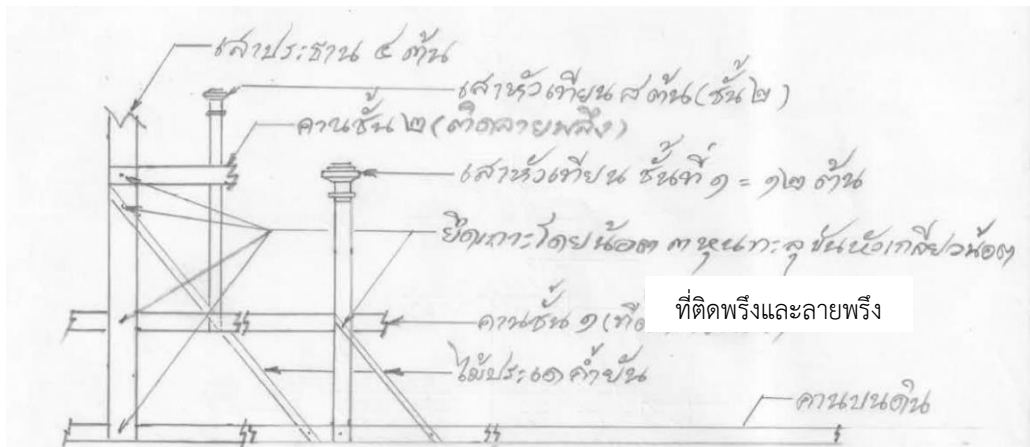 เสาประธาน ๔ ต้น
เสาหัวเทียน ๘ ต้น (ชั้น ๒)
คานชั้น ๒ (ติดลายพลึง)
เสาหัวเทียน ชั้นที่ ๑ = ๑๒ ต้น
ยึดเกาะโดยน้อต ๓ หุนทะลุขันหัวเกลียวน้อต
ที่ติดพรึงและลายพรึง
คานชั้น ๑ (ที่
ไม้ประเดค้ำยัน
คานบนดิน